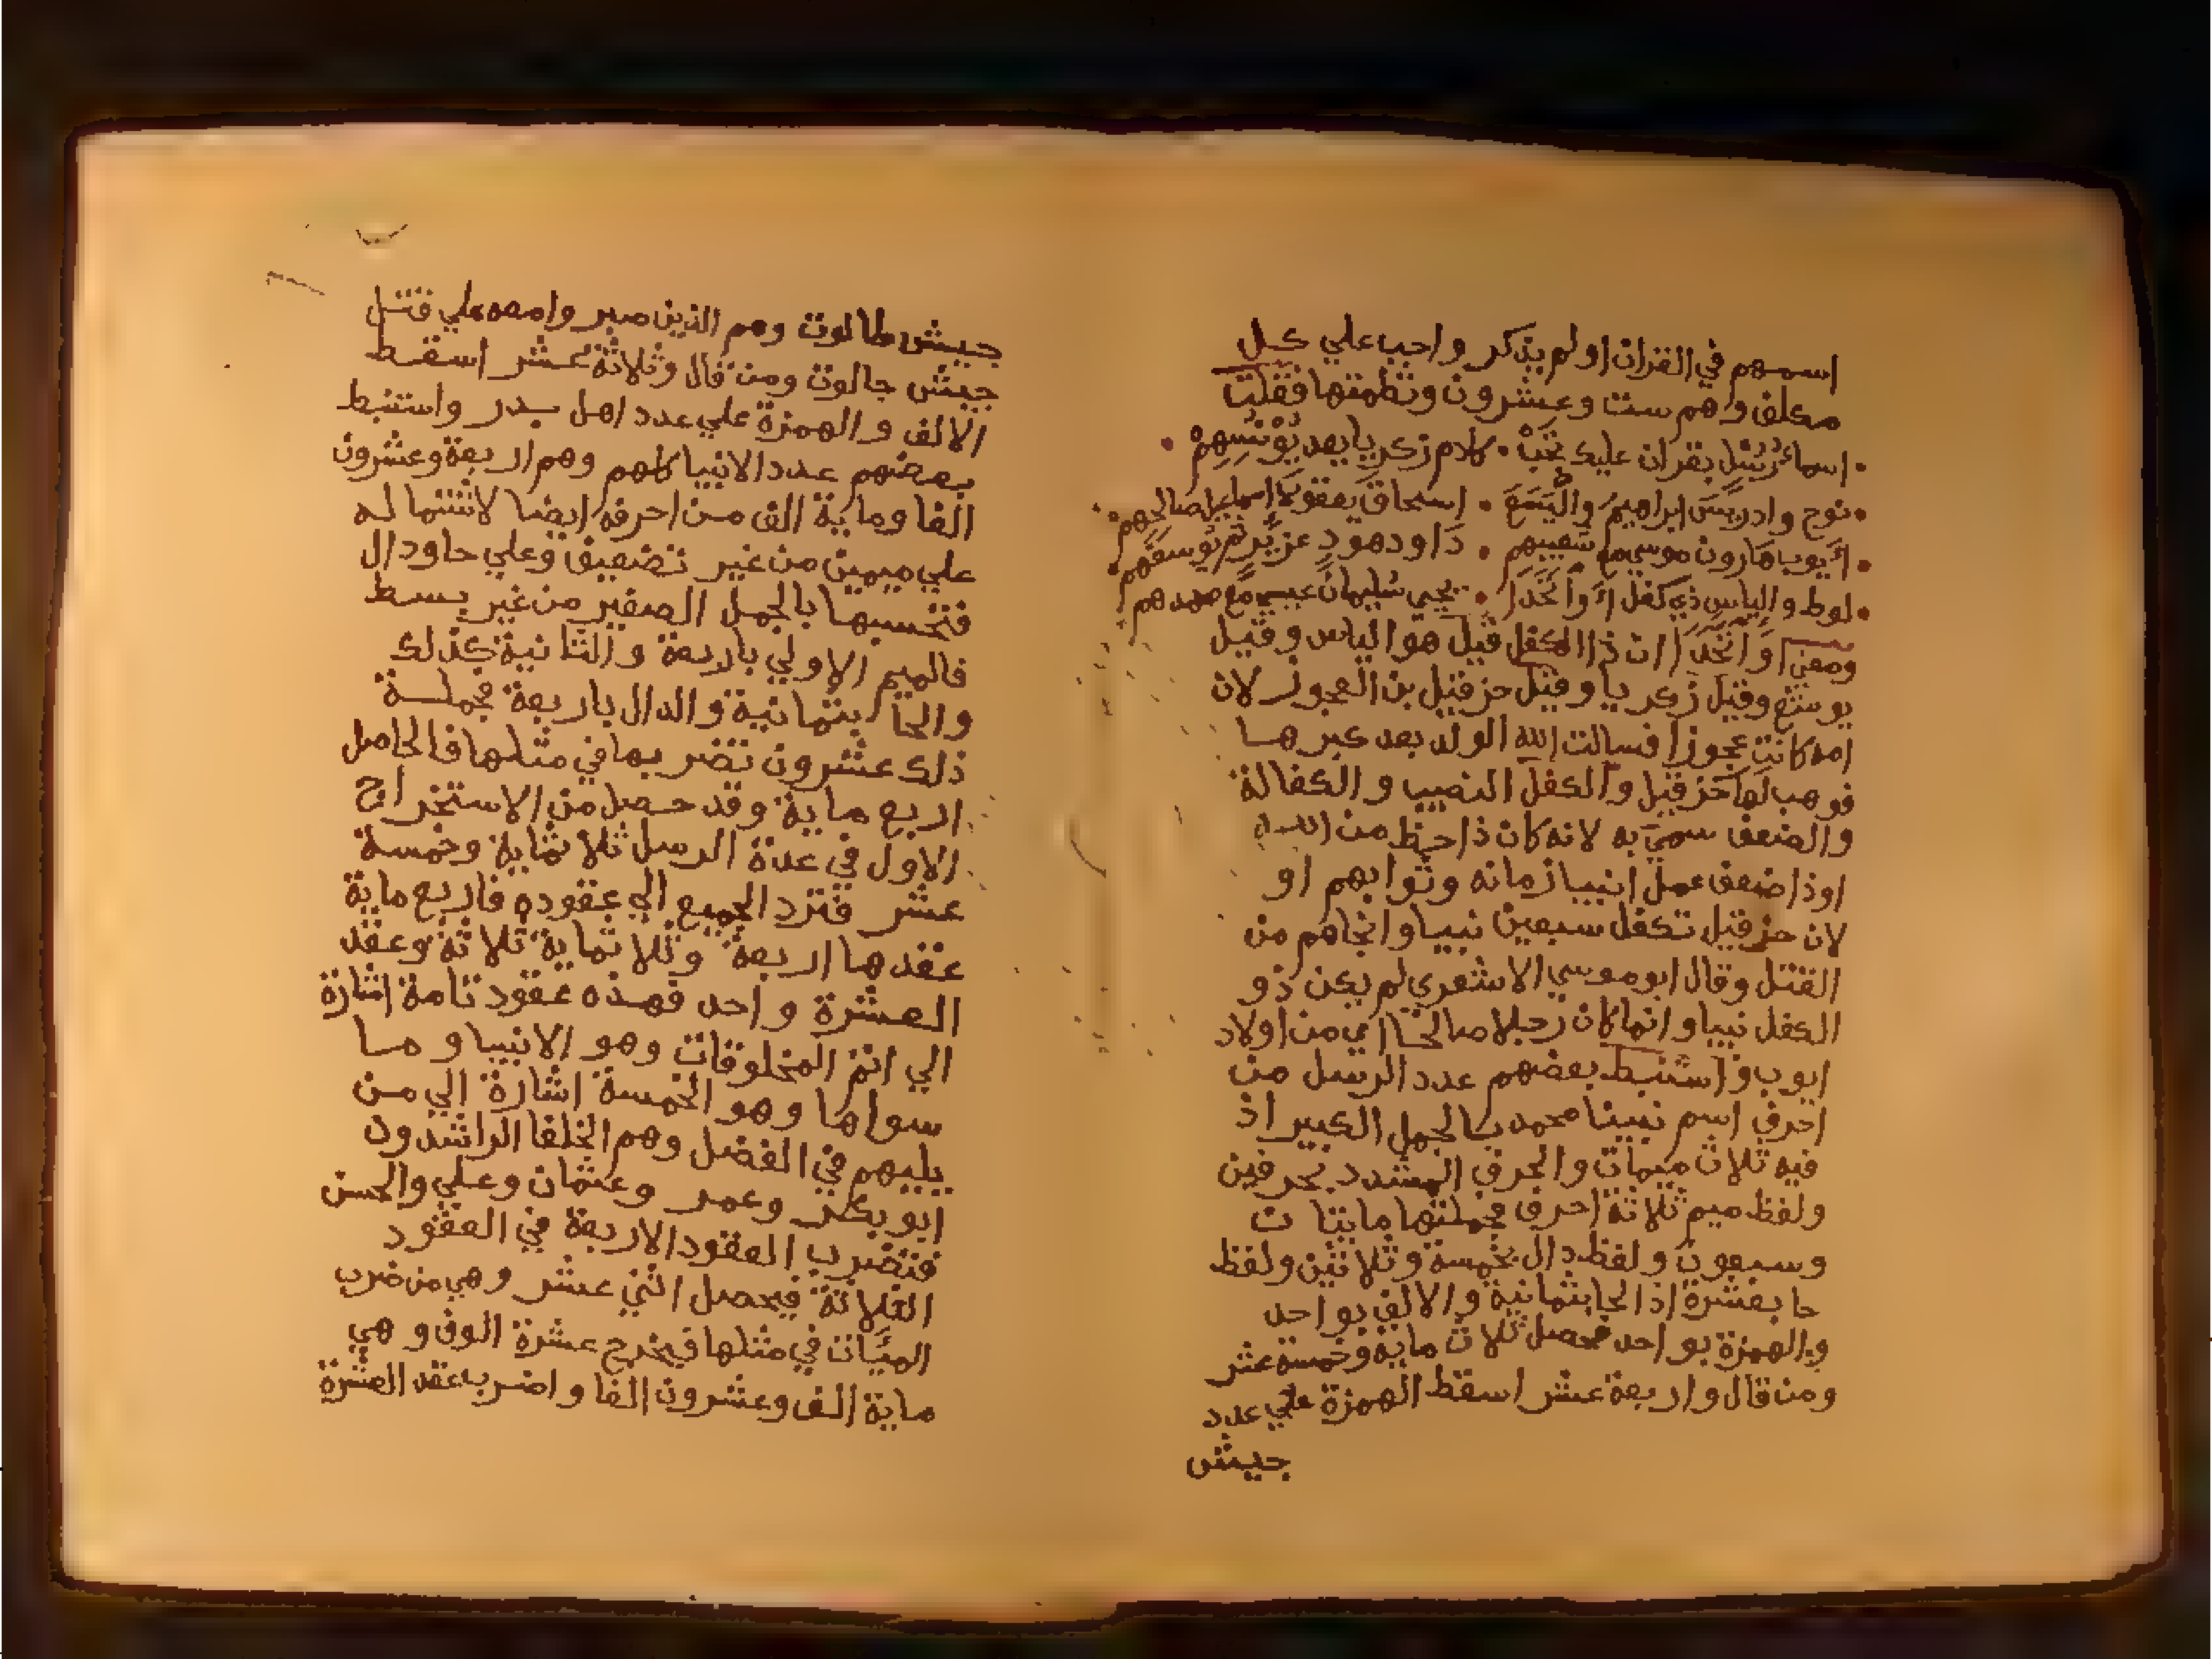 اسمهم في القران اولم يذكر واجب علي كل
مكلف وهم ست وعشرون ونظمتها فقلت
اسما رسل بقران عليك تجب كلام زكريا بعد يونسهم
نوح وادريس ابراهيم واليسع اسحاق يعقوب اسماعيل صالحهم
ايوب هارون موسي مع شعيبهم داود هود عزير ثم يوسفهم
لوط والياس ذي كفل او اتحدا يحيي سليمان عيسي مع محمدهم
ومعني او اتحدا ان ذا الكفل قيل هو الياس وقيل
يوشع وقيل زكريا وقيل حزقيل بن العجوز لان
امه كانت عجوزا فسالت الله الولد بعد كبرها
فوهب لها حزقيل والكفل النصيب والكفالة
والضعف سمي به لانه كان ذا حظ من الله
اوذا ضعف عمل انبيا زمانه وثوابهم او
لان حزقيل تكفل سبعين نبيا وانجاهم من
القتل وقال ابو موسي الاشعري لم يكن ذو
الكفل نبيا وانما كان رجلا صالحا اي من اولاد
ايوب واستنبط بعضهم عدد الرسل من
احرف اسم نبينا محمد بالجمل الكبير اذ
فيه ثلاث ميمات والحرف المشدد بحرفين
ولفظ ميم ثلاثة احرف فجملتها مايتا ن
وسبعون ولفظ دال بخمسة وثلاثين ولفظ
حا بعشرة اذ الحا بثمانية والالف بواحد
والهمزة بواحد فحصل ثلاث ماية وخمسة عشر
ومن قال واربعة عشر اسقط الهمزة علي عدد
جيش
جيش طالوت وهم الذين صبر وامعه علي قتل
جيش جالوت ومن قال وثلاثة عشر اسقط
الالف والهمزة علي عدد اهل بدر واستنبط
بعضهم عدد الانبيا كلهم وهم اربعة وعشرون
الفا وماية الف من احرفه ايضا لاشتماله
علي ميمين من غير تضعيف وعلي حا ودال
فتحسبها بالجمل الصغير من غير بسط
فالميم الاولي باربعة والثانية كذلك
والحا بثمانية والدال باربعة فجملة
ذلك عشرون تضربها في مثلها فالحاصل
اربع ماية وقد حصل من الاستخراج
الاول في عدة الرسل ثلاثماية وخمسة
عشر فترد الجميع الي عقوده فاربع ماية
عقدها اربعة وثلاثماية ثلاثة وعقد
العشرة واحد فهذه عقود تامة اشارة
الي اتم المخلوقات وهو الانبيا وما
سواها وهو الخمسة اشارة الي من
يليهم في الفضل وهم الخلفا الراشدون
ابو بكر وعمر وعثمان وعلي والحسن
فتضرب العقود الاربعة في العقود
الثلاثة فيحصل اثني عشر وهي من ضرب
الميات في مثلها فيخرج عشرة الوف وهي
ماية الف وعشرون الفا واضرب عقد العشرة